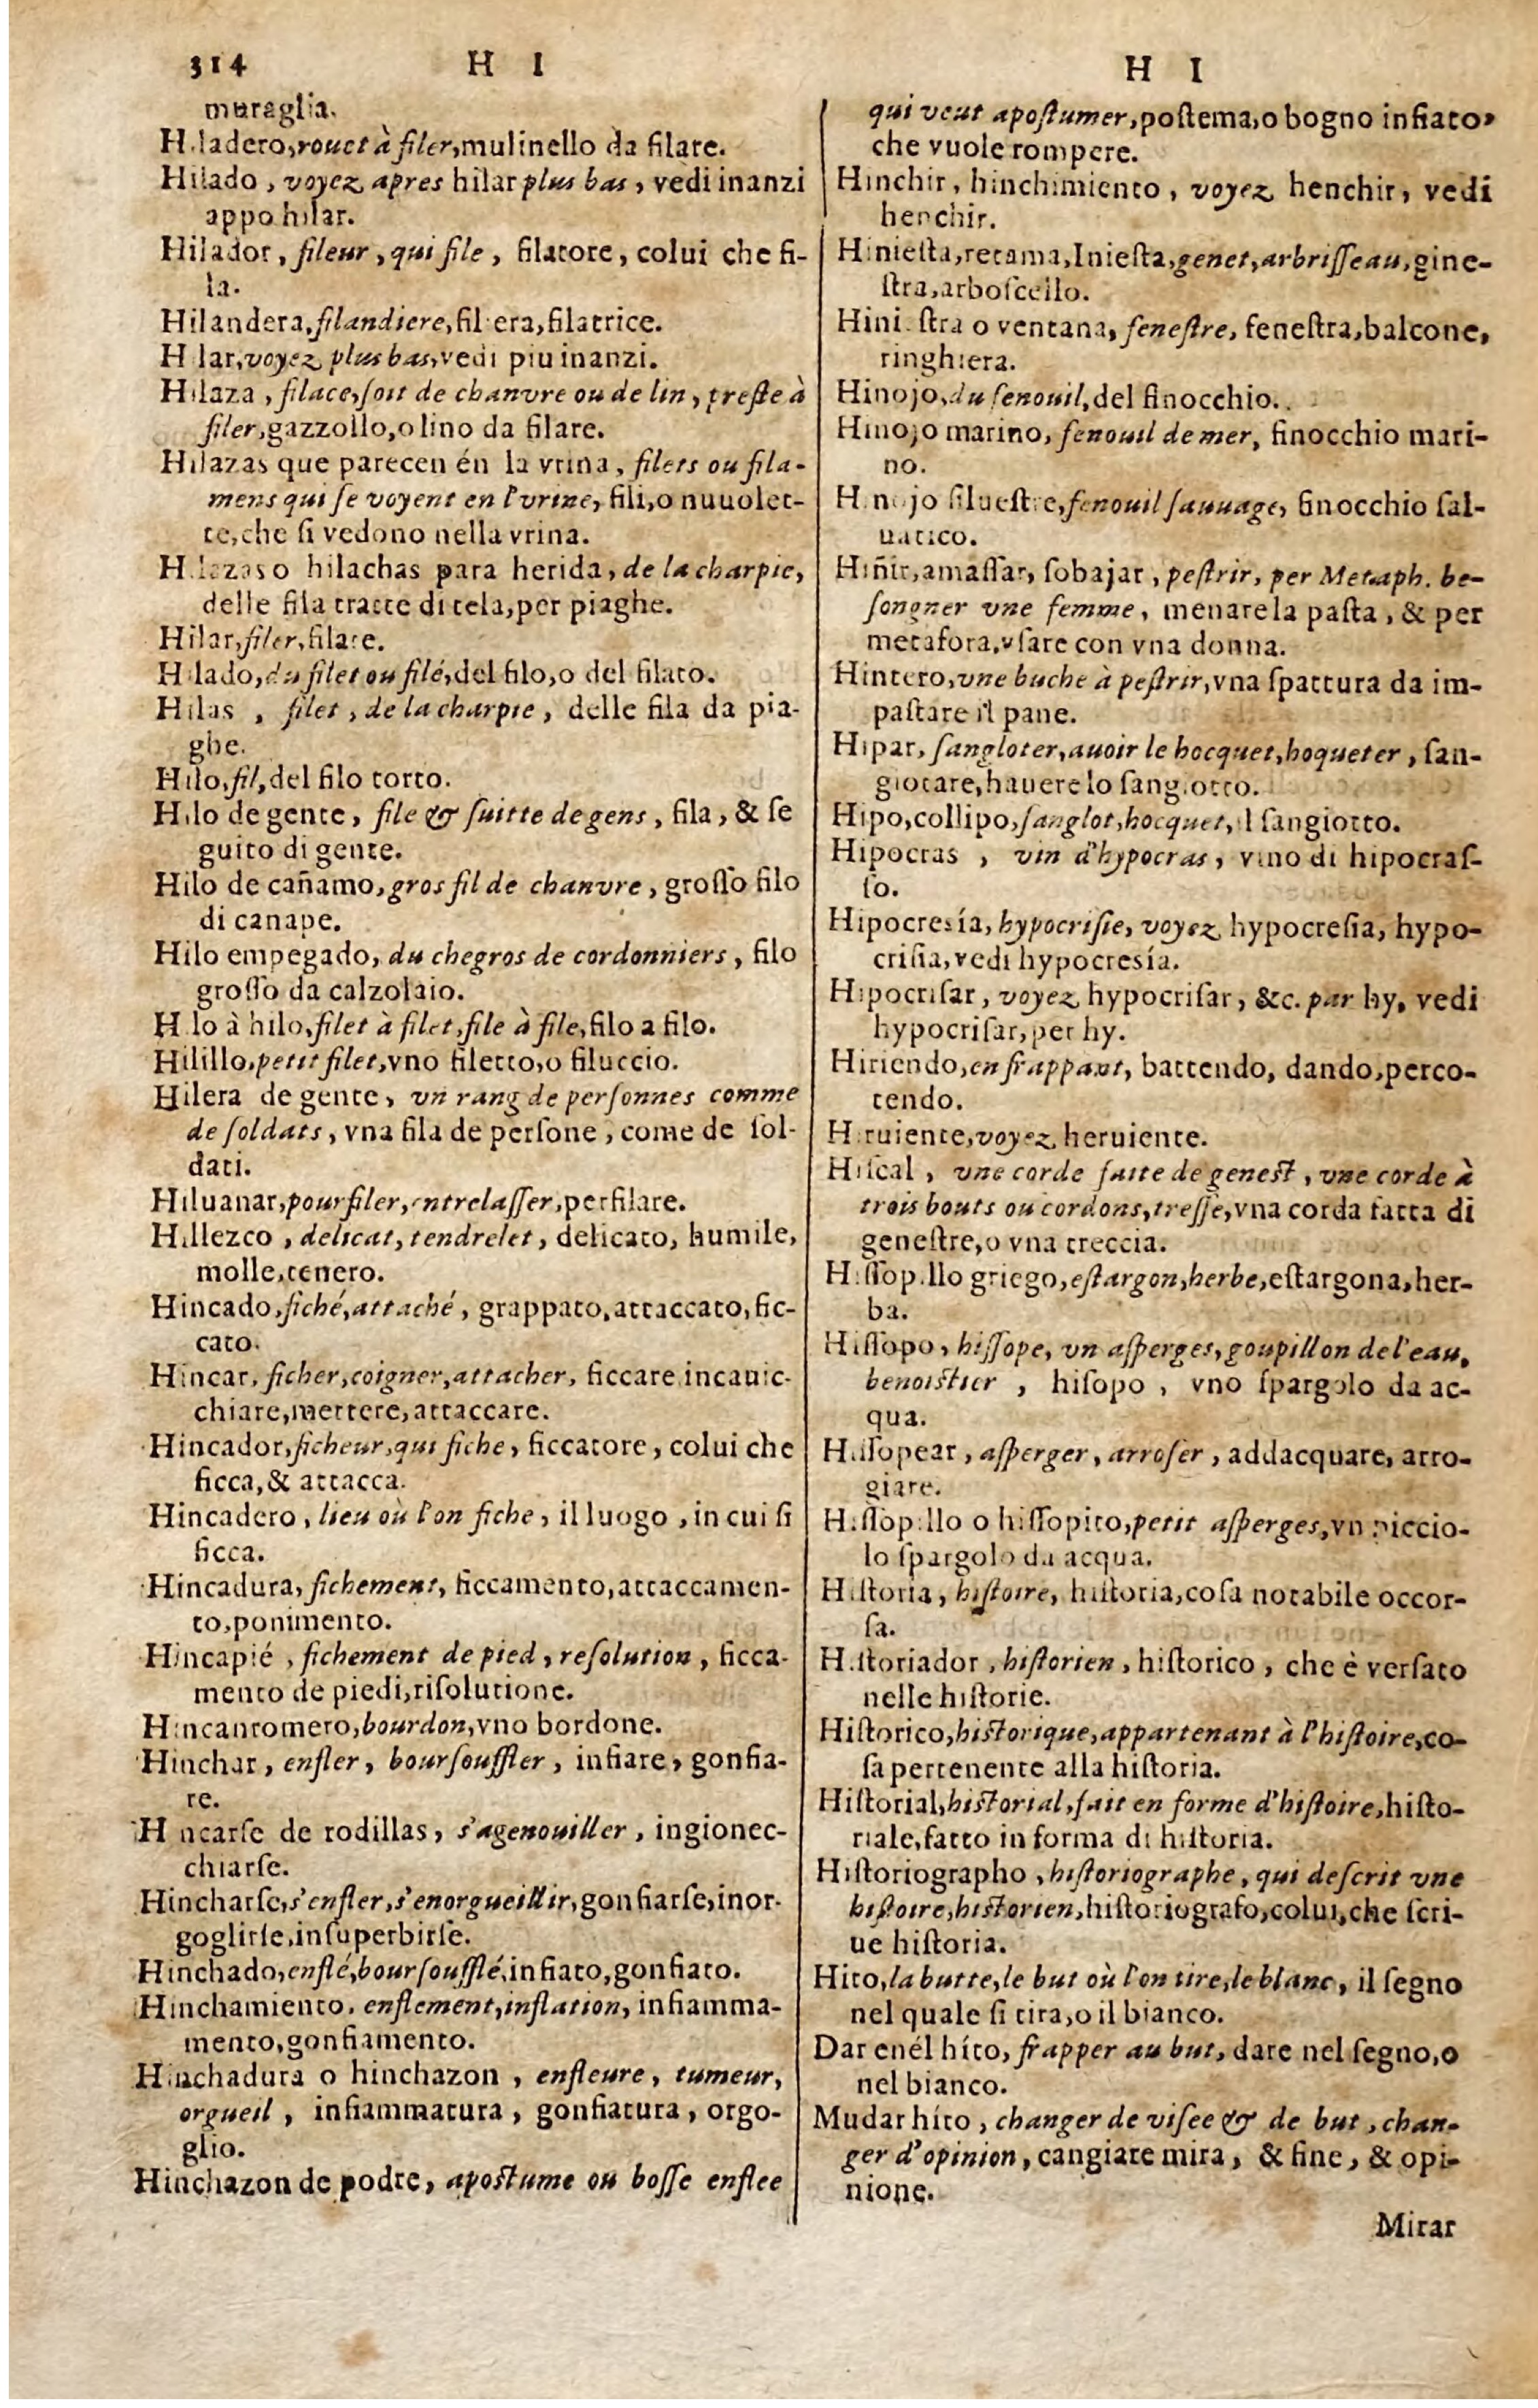 314 H I
muraglia.
Hiladero, rouet à filer, mulinello da filare.
Hilado, voyez apres hilar plus bas, vedi inanzi
appo hilar.
Hilador, fileur, qui file, filatore, colui che fi-
la.
Hilandera, filandiere, filiera, filatrice.
Hilar, voyez plus bas, vedi piu inanzi.
Hilaza, filace, soit de chanvre ou de lin, preste à
filer, gazzollo, o lino da filare.
Hilazas que parecen én la vrina, filets ou fila-
mens qui se voyent en l'vrine, fili, o nuuolet-
te, che si vedono nella vrina.
Hilazas o hilachas para herida, de la charpie,
delle fila tratte di tela, per piaghe.
Hilar, filer, filare.
Hilado, du filet ou filé, del filo, o del filato.
Hilas, filet, de la charpie, delle fila da pia-
ghe.
Hilo, fil, del filo torto.
Hilo de gente, file & suitte de gens, fila, & se
guito di gente.
Hilo de cañamo, gros fil de chanvre, grosso filo
di canape.
Hilo empegado, du chegros de cordonniers, filo
grosso da calzolaio.
Hilo à hilo, filet à filet, file à file, filo a filo.
Hilillo, petit filet, vno filetto, o filuccio.
Hilera de gente, vn rang de personnes comme
de soldats, vna fila de persone, come de sol-
dati.
Hiluanar, pourfiler, entrelasser, perfilare.
Hillezco, delicat, tendrelet, delicato, humile,
molle, tenero.
Hincado, fiché, attaché, grappato, attaccato, fic-
cato.
Hincar, ficher, coigner, attacher, ficcare incauic-
chiare, mettere, attaccare.
Hincador, ficheur, qui fiche, ficcatore, colui che
ficca, & attacca.
Hincadero, lieu où l'on fiche, il luogo, in cui si
ficca.
Hincadura, fichement, ficcamento, attaccamen-
to, ponimento.
Hincapié, fichement de pied, resolution, ficca-
mento de piedi, risolutione.
Hincantomero, bourdon, vno bordone.
Hinchar, enfler, boursouffler, infiare, gonfia-
re.
Hincarse de rodillas, s'agenouiller, ingionec-
chiarse.
Hincharse, s'enfler, s'enorgueillir, gonfiarse, inor-
goglirse, insuperbirse.
Hinchado, enflé, boursoufflé, infiato, gonfiato.
Hinchamiento, enflement, inflation, infiamma-
mento, gonfiamento.
Hinchadura o hinchazon, enfleure, tumeur,
orgueil, infiammatura, gonfiatura, orgo-
glio.
Hinchazon de podre, apostume ou bosse enflee
H I
qui veut apostumer, postema, o bogno infiato,
che vuole rompere.
Hinchir, hinchimiento, voyez henchir, vedi
henchir.
Hiniesta, retama, Iniesta, genet, arbrisseau, gine-
stra, arboscello.
Hiniestra o ventana, fenestre, fenestra, balcone,
ringhiera.
Hinojo, du fenouil, del finocchio.
Hinojo marino, fenouil de mer, finocchio mari-
no.
Hinojo siluestre, fenouil sauuage, finocchio sal-
uatico.
Hiñir, amassar, sobajar, pestrir, per Metaph. be-
songner vne femme, menare la pasta, & per
metafora, vsare con vna donna.
Hintero, vne buche à pestrir, vna spattura da im-
pastare il pane.
Hipar, sangloter, auoir le hocquet, hoqueter, san-
giotare, hauere lo sangiotto.
Hipo, collipo, sanglot, hocquet, il sangiotto.
Hipocras, vin d'hypocras, vino di hipocras-
so.
Hipocresía, hypocrisie, voyez hypocresia, hypo-
crisia, vedi hypocresía.
Hipocrisar, voyez hypocrisar, &c. par hy, vedi
hypocrisar, per hy.
Hiriendo, en frappant, battendo, dando, perco-
tendo.
Hiruiente, voyez heruiente.
Hiscal, vne corde faite de genest, vne corde à
trois bouts ou cordons, tresse, vna corda fatta di
genestre, o vna treccia.
Hissopillo griego, estargon, herbe, estargona, her-
ba.
Hissopo, hissope, vn asperges, goupillon de l'eau,
benoistier, hisopo, vno spargolo da ac-
qua.
Hissopear, asperger, arroser, addacquare, arro-
giare.
Hissopillo o hissopito, petit asperges, vn piccio-
lo spargolo da acqua.
Historia, histoire, historia, cosa notabile occor-
sa.
Historiador, historien, historico, che è versato
nelle historie.
Historico, historique, appartenant à l'histoire, co-
sa pertenente alla historia.
Historial, historial, fait en forme d'histoire, histo-
riale, fatto in forma di historia.
Historiographo, historiographe, qui descrit vne
histoire, historien, historiografo, colui, che scri-
ue historia.
Hito, la butte, le but où l'on tire, le blanc, il segno
nel quale si tira, o il bianco.
Dar enél híto, frapper au but, dare nel segno, o
nel bianco.
Mudar híto, changer de visee & de but, chan-
ger d'opinion, cangiare mira, & fine, & opi-
nione.
Mirar